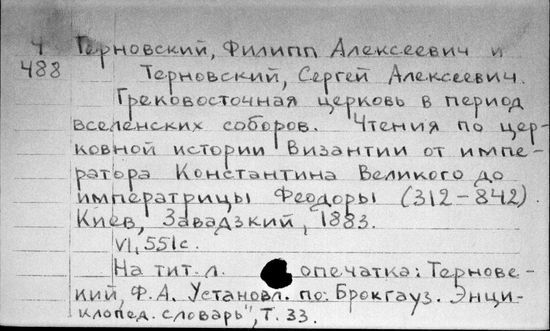 Ч Терновский, Филипп Алексеевич и
488 Терновский, Сергей Алексеевич.
Грековосточная церковь в период
вселенских соборов. Чтения по цер-
ковной истории Византии от импе-
ратора Константина Великого до
императрицы Феодоры (312-842).
Киев, Завадзкий, 1883.
VI, 551с.
На тит. л. опечатка: Тернове-
кий, Ф.А. Установл. по: Брокгауз. Энци-
клопед. словарь", Т. 33.